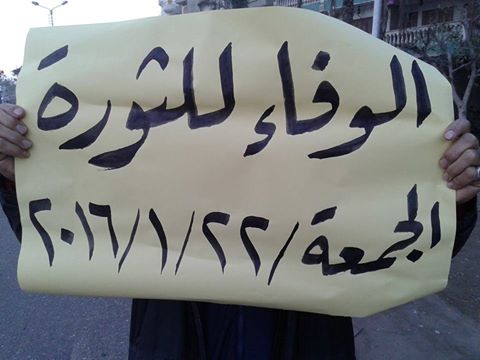 الوفاء للثورة
الجمعة/٢٢/١/٢٠١٦